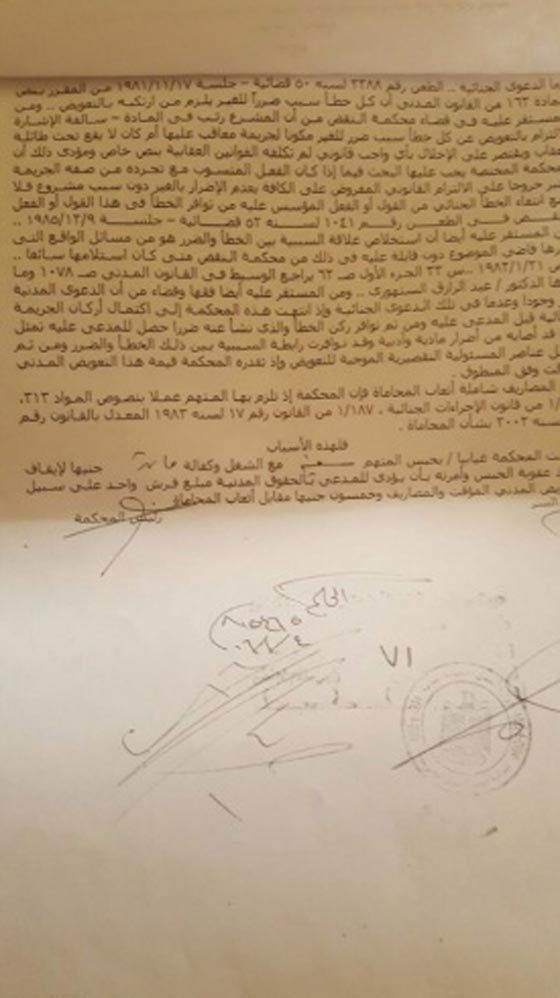 ما الدعوى الجنائية .. الطعن رقم ٣٣٨٨ لسنه ٥٠ قضائية – جلسة ١٩٨١/١١/١٧ من المقرر بنص
ادة ١٦٣ من القانون المدني أن كل خطأ سبب ضررا للغير يلزم من ارتكبه بالتعويض .. ومن
مستقر عليه في قضاء محكمة النقض من أن المشرع رتب في المادة – سالفة الإشارة
تزام بالتعويض عن كل خطأ سبب ضرر للغير مكونا لجريمة معاقب عليها أم كان لا يقع تحت طائلة
عقاب ويقتصر على الإخلال بأي واجب قانوني لم تكلفه القوانين العقابية بنص خاص ومؤدى ذلك أن
محكمة المختصة يجب عليها البحث فيما إذا كان الفعل المنسوب مع تجرده من صفه الجريمة
خروجا على الالتزام القانوني المفروض على الكافة بعدم الإضرار بالغير دون سبب مشروع فلا
ع انتفاء الخطأ الجنائي من القول أو الفعل المؤسس عليه من توافر الخطأ في هذا القول أو الفعل
ض في الطعن رقم ١٠٤١ لسنه ٥٢ قضائية – جلسة ١٩٨٥/١٢/٩ ..
المستقر عليه أيضا أن استخلاص علاقة السببية بين الخطأ والضرر هو من مسائل الواقع التي
رها قاضي الموضوع دون رقابة عليه في ذلك من محكمة النقض متى كان استلامها سائغا ..
١٩٨٢/١/٢١ ..س ٣٣ الجزء الأول صـ ٦٢ يراجع الوسيط في القانون المدني صـ ١٠٧٨ وما
ها الدكتور / عبد الرازق السنهوري .. ومن المستقر عليه أيضا فقها وقضاء من أن الدعوى المدنية
وجودا وعدما في تلك الدعوى الجنائية وإذ انتهت هذه المحكمة إلى اكتمال أركان الجريمة
ائية قبل المدعى عليه ومن ثم توافر ركن الخطأ والذي نشأ عنه ضررا حصل للمدعى عليه تمثل
قد أصابه من أضرار مادية وأدبية وقد توافرت رابطة السببية بين ذلك الخطأ والضرر ومن ثم
ل عناصر المسئولية التقصيرية الموجبة للتعويض وإذ تقدره المحكمة قيمة هذا التعويض المدني
ت وفق المنطوق .
المصاريف شاملة أتعاب المحاماة فإن المحكمة إذ تلزم بها المتهم عملا بنصوص المواد ٣١٣،
/١ من قانون الإجراءات الجنائية ، ١/١٨٧ من القانون رقم ١٧ لسنه ١٩٨٣ المعدل بالقانون رقم
لسنه ٢٠٠٢ بشأن المحاماة .
فلهذه الأسباب
ت المحكمة غيابيا / بحبس المتهم مع الشغل وكفالة جنيها لإيقاف
عقوبة الحبس وأمرته بأن يؤدى للمدعي بالحقوق المدنية مبلغ قرش واحد على سبيل
يض المدني المؤقت والمصاريف وخمسون جنيها مقابل أتعاب المحاماة
رئيس المحكمة
٧١